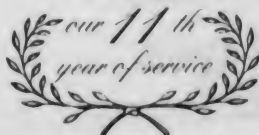 our 11th
year of service